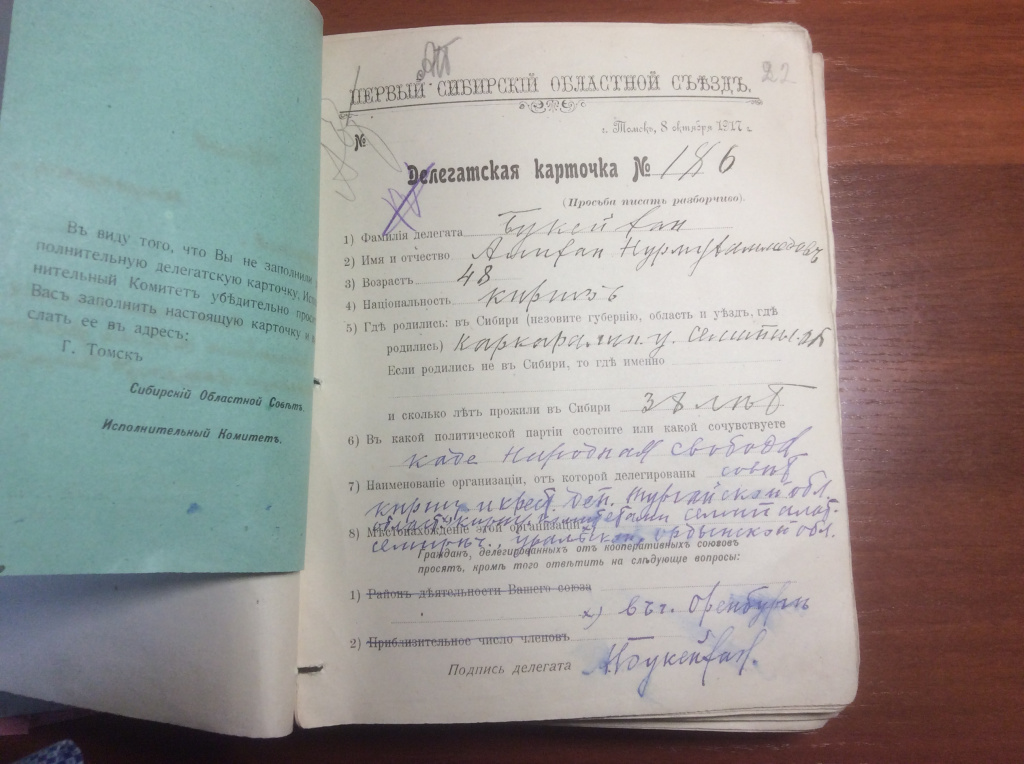 Въ виду того, что Вы не заполнили
полнительную делегатскую карточку, Исп
нительный Комитетъ убѣдительно прос
Васъ заполнить настоящую карточку и
слать ее въ адресъ:
Г. Томскъ
Сибирскій Областной Совѣтъ.
Исполнительный Комитетъ.
22
ПЕРВЫЙ СИБИРСКІЙ ОБЛАСТНОЙ СЪѢЗДЪ.
г. Томскъ, 8 октября 1917 г.
№
Делегатская карточка № 186
(Просьба писать разборчиво).
1) Фамилія делегата Букейхан
2) Имя и отчество Алихан Нурмухаммедовъ
3) Возрастъ 48
4) Національность киргизъ
5) Гдѣ родились: въ Сибири (незовите губернію, область и уѣздъ, гдѣ
родились) Каркаралин. у. Семипал. об
Если родились не въ Сибири, то гдѣ именно
и сколько лѣтъ прожили въ Сибири 38 лѣт
6) Въ какой политической партіи состоите или какой сочувствуете
каде Народная свобода
7) Наименованіе организаціи, отъ которой делегированы совѣт
киргиз и крест. деп. Тургайской обл.
8) Мѣстонахожденіе этой организаціи
област. киргиз. комитетами Семипалат.
Семирѣч., Уральской, Ордынской обл.
Гражданъ, делегированныхъ отъ кооперативныхъ союзовъ
просятъ, кромѣ того отвѣтить на слѣдующіе вопросы:
1) Районъ дѣятельности Вашего союза
х) въ г. Оренбургъ
2) Приблизительное число членовъ
Подпись делегата А Букейхан.